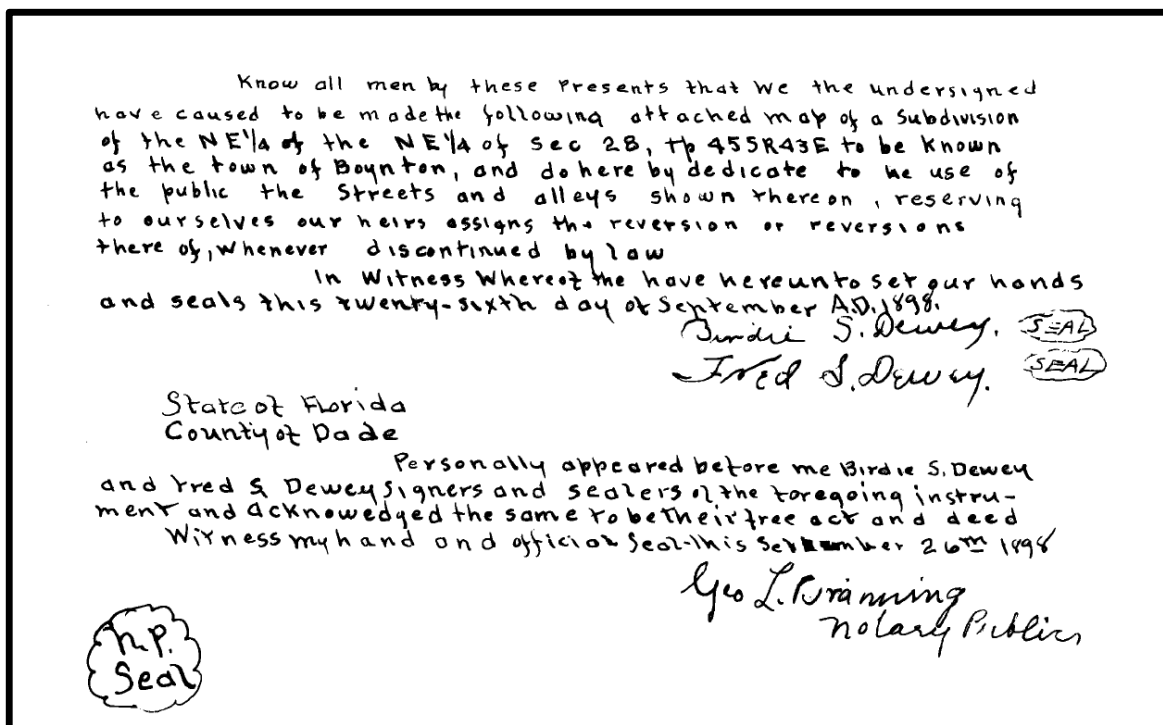 Know all men by these Presents that We the undersigned
have caused to be made the following attached map of a Subdivision
of the NE1/4 of the NE1/4 of Sec 28, tp 45SR43E to be Known
as the town of Boynton, and do here by dedicate to he use of
the public the Streets and alleys shown thereon, reserving
to ourselves our heirs assigns the reversion or reversions
there of, Whenever discontinued by law
In Witness Whereof the have hereunto set our hands
and seals this twenty-sixth day of September A.D. 1898.
Birdie S. Dewey. SEAL
Fred S. Dewey. SEAL
State of Florida
County of Dade
Personally appeared before me Birdie S. Dewey
and Fred S Dewey Signers and sealers of the foregoing instru-
ment and acknowedged the same to be their free act and deed
Witness my hand and official Seal this September 26th 1898
Geo L. Branning
Notary Public
N.P.
Seal